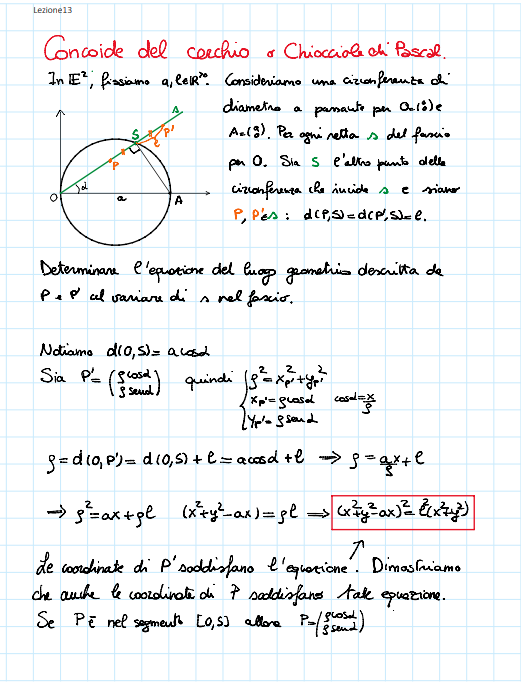 Lezione13
Concoide del cerchio o Chiocciola di Pascal.
In E², fissiamo a, l∈ℝ>0. Consideriamo una circonferenza di
diametro a passante per O=(0 0) e
A=(a 0). Per ogni retta s del fascio
per O. Sia S l'altro punto della
circonferenza che incide s e siano
P, P'∈s : d(P,S)=d(P',S)=l.
s
S
l
P'
l
P
O
α
a
A
Determinare l'equazione del luogo geometrico descritto da
P e P' al variare di s nel fascio.
Notiamo d(O,S)= a cosα
Sia P'= (ρcosα ρsenα) quindi { ρ²=x²p'+y²p'
xp'=ρcosα cosα=x/ρ
yp'=ρsenα
ρ=d(O,P')=d(O,S)+l=acosα+l ⟹ ρ=ax/ρ+l
⟹ ρ²=ax+ρl (x²+y²-ax)=ρl ⟹ (x²+y²-ax)²=l²(x²+y²)
Le coordinate di P' soddisfano l'equazione. Dimostriamo
che anche le coordinate di P soddisfano tale equazione.
Se P è nel segmento [O,S] allora P=(ρcosα ρsenα)